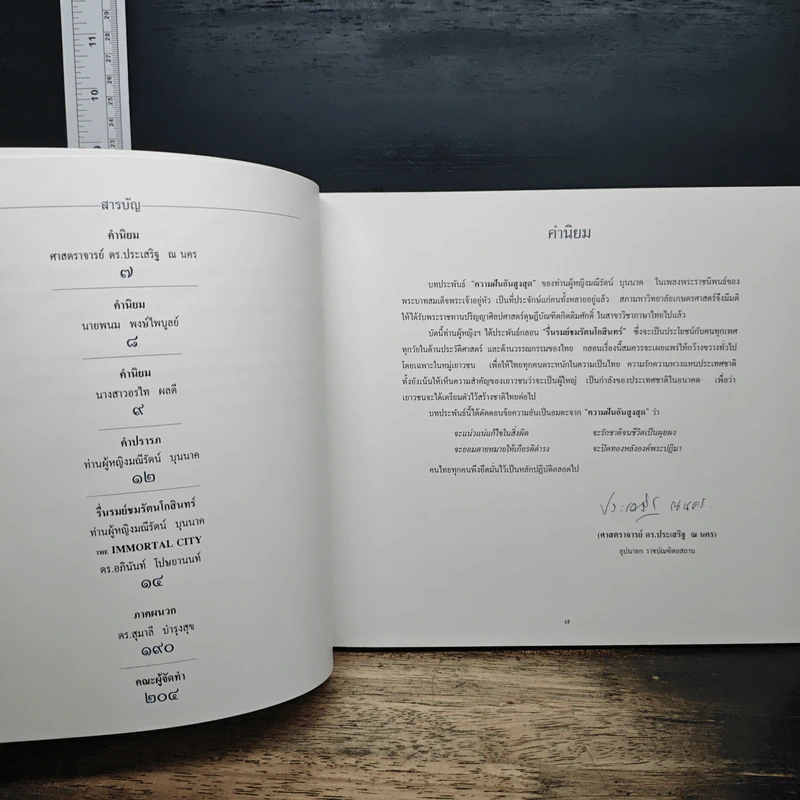 11
10
9
29
28
27
26
25
24
23
สารบัญ
คำนิยม
ศาสตราจารย์ ดร.ประเสริฐ ณ นคร
๗
คำนิยม
นายพนม พงษ์ไพบูลย์
๘
คำนิยม
นางสาวอรไท ผลดี
๙
คำปรารภ
ท่านผู้หญิงมณีรัตน์ บุนนาค
๑๒
รื่นรมย์ชมรัตนโกสินทร์
ท่านผู้หญิงมณีรัตน์ บุนนาค
THE IMMORTAL CITY
ดร.อภินันท์ โปษยานนท์
๑๔
ภาคผนวก
ดร.สุมาลี บำรุงสุข
๑๙๐
คณะผู้จัดทำ
๒๐๔
คำนิยม
บทประพันธ์ "ความฝันอันสูงสุด" ของท่านผู้หญิงมณีรัตน์ บุนนาค ในเพลงพระราชนิพนธ์ของ
พระบาทสมเด็จพระเจ้าอยู่หัว เป็นที่ประจักษ์แก่คนทั้งหลายอยู่แล้ว สภามหาวิทยาลัยเกษตรศาสตร์จึงมีมติ
ให้ได้รับพระราชทานปริญญาศิลปศาสตร์ดุษฎีบัณฑิตกิตติมศักดิ์ ในสาขาวิชาภาษาไทยไปแล้ว
บัดนี้ท่านผู้หญิงฯ ได้ประพันธ์กลอน "รื่นรมย์ชมรัตนโกสินทร์" ซึ่งจะเป็นประโยชน์กับคนทุกเพศ
ทุกวัยในด้านประวัติศาสตร์ และด้านวรรณกรรมของไทย กลอนเรื่องนี้สมควรจะเผยแพร่ให้กว้างขวางทั่วไป
โดยเฉพาะในหมู่เยาวชน เพื่อให้ไทยทุกคนตระหนักในความเป็นไทย ความรักความหวงแหนประเทศชาติ
ทั้งยังเน้นให้เห็นความสำคัญของเยาวชนว่าจะเป็นผู้ใหญ่ เป็นกำลังของประเทศชาติในอนาคต เพื่อว่า
เยาวชนจะได้เตรียมตัวไว้สร้างชาติไทยต่อไป
บทประพันธ์นี้ได้ตัดตอนข้อความอันเป็นอมตะจาก "ความฝันอันสูงสุด" ว่า
จะแน่วแน่แก้ไขในสิ่งผิด จะรักชาติจนชีวิตเป็นผุยผง
จะยอมตายหมายให้เกียรติดำรง จะปิดทองหลังองค์พระปฏิมา
คนไทยทุกคนพึงยึดมั่นไว้เป็นหลักปฏิบัติตลอดไป
ประเสริฐ ณ นคร
(ศาสตราจารย์ ดร.ประเสริฐ ณ นคร)
อุปนายก ราชบัณฑิตยสถาน
๗